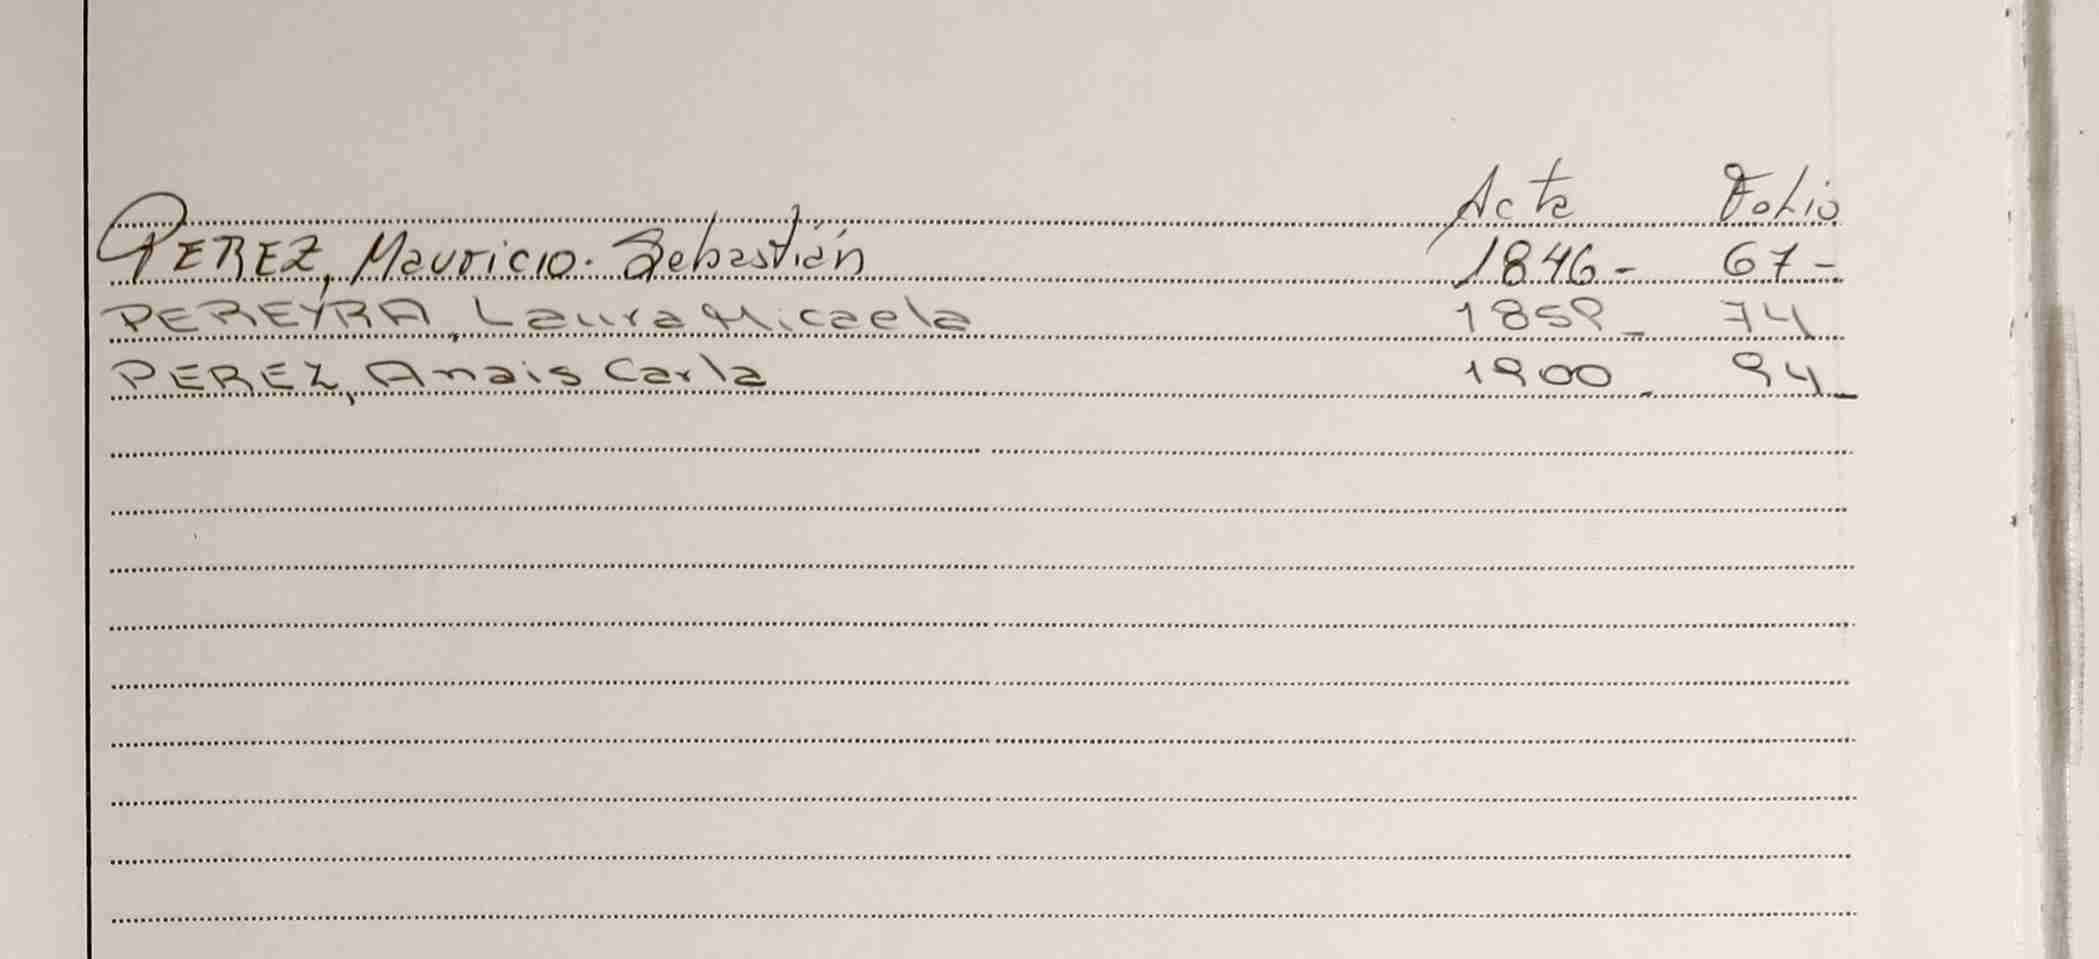 Acta Folio
PEREZ, Mauricio. Sebastián 1846- 67-
PEREYRA, Laura Micaela 1859- 74
PEREZ, Anais Carla 1900- 94-